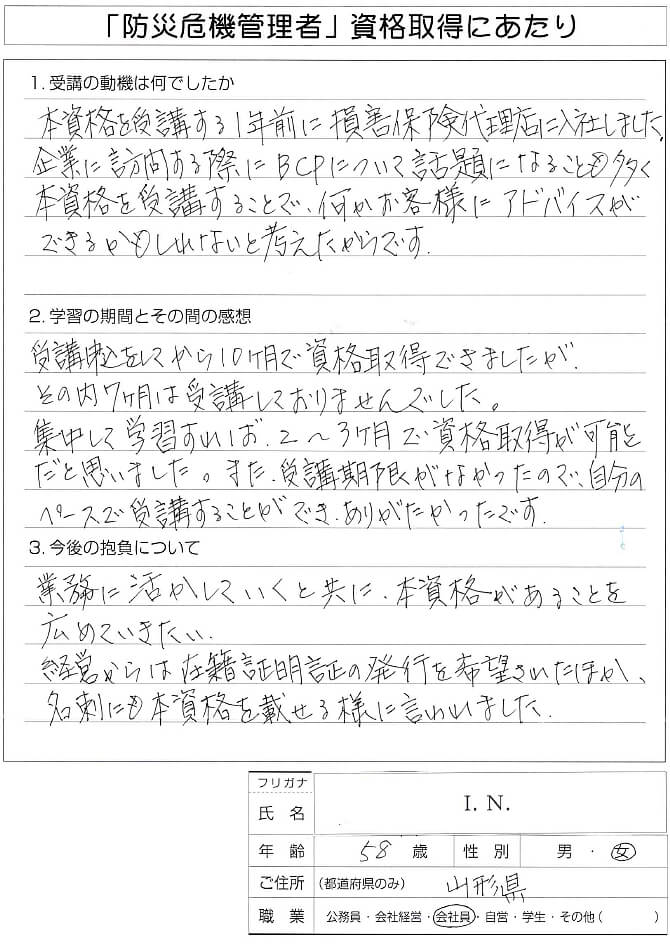 「防災危機管理者」資格取得にあたり
1. 受講の動機は何でしたか
本資格を受講する1年前に損害保険代理店に入社しました。
企業に訪問する際にBCPについて話題になることも多く
本資格を受講することで、何かお客様にアドバイスが
できるかもしれないと考えたからです.
2. 学習の期間とその間の感想
受講申込をしてから10ヶ月で資格取得できましたが、
その内7ヶ月は受講しておりませんでした。
集中して学習すれば、2〜3ヶ月で資格取得が可能と
だと思いました。また、受講期限がなかったので、自分の
ペースで受講することができ、ありがたかったです.
3. 今後の抱負について
業務に活かしていくと共に、本資格があることを
広めていきたい.
経営からは在籍証明証の発行を希望されたほか、
名刺にも本資格を載せる様に言われました.
フリガナ
氏 名 I. N.
年 齢 58 歳 性 別 男 ・ 女
ご住所 (都道府県のみ) 山形県
職 業 公務員・会社経営・会社員・自営・学生・その他( )